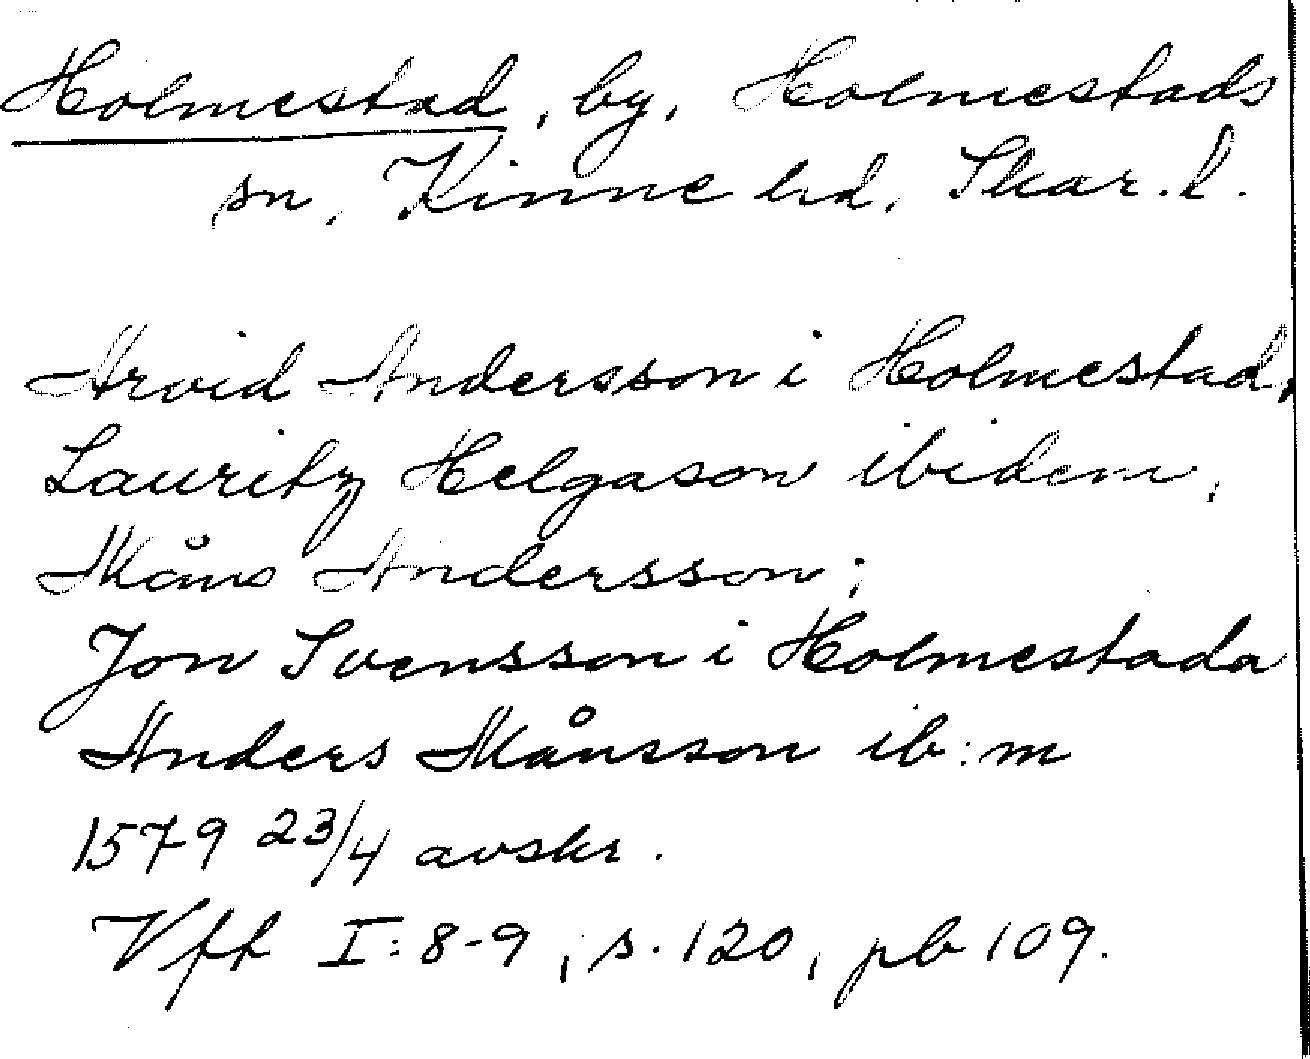 Holmestad, by, Holmestads
sn, Kinne hd, Skar. l.
Arvid Andersson i Holmestad,
Lauritz Helgason ibidem,
Måns Andersson;
Jon Svensson i Holmestada
Anders Månsson ib:m
1579 23/4 avskr.
Vff I: 8-9, s. 120, pb 109.